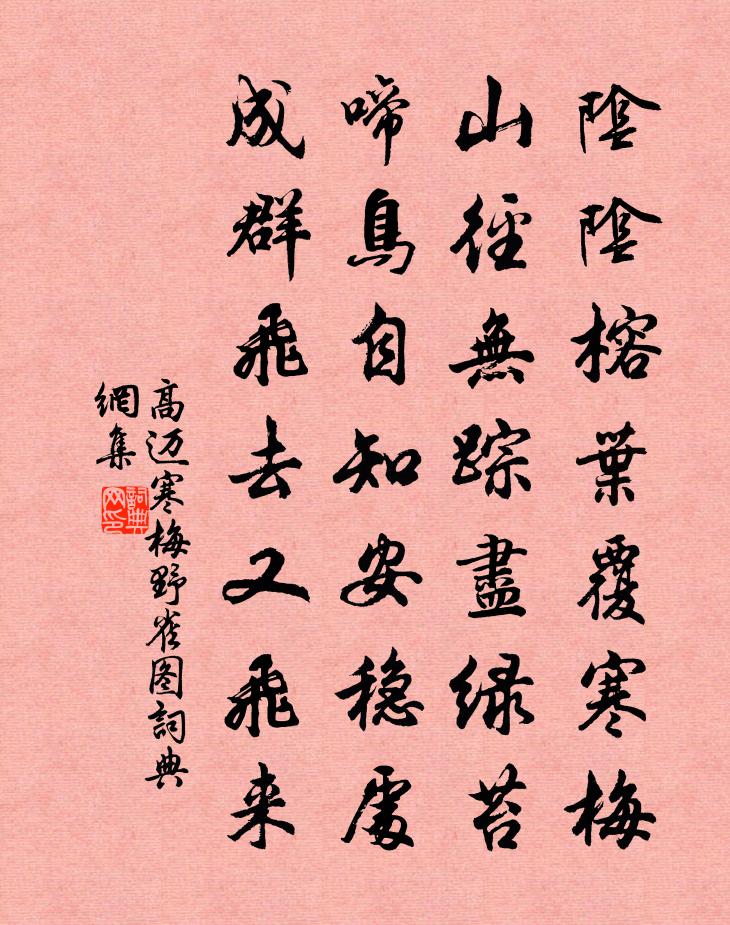 陰陰榕葉覆寒梅
山徑無踪盡緑苔
啼鳥自知安穏處
成群飛去又飛来
高迈寒梅野雀图詞典
網集
詞典网印